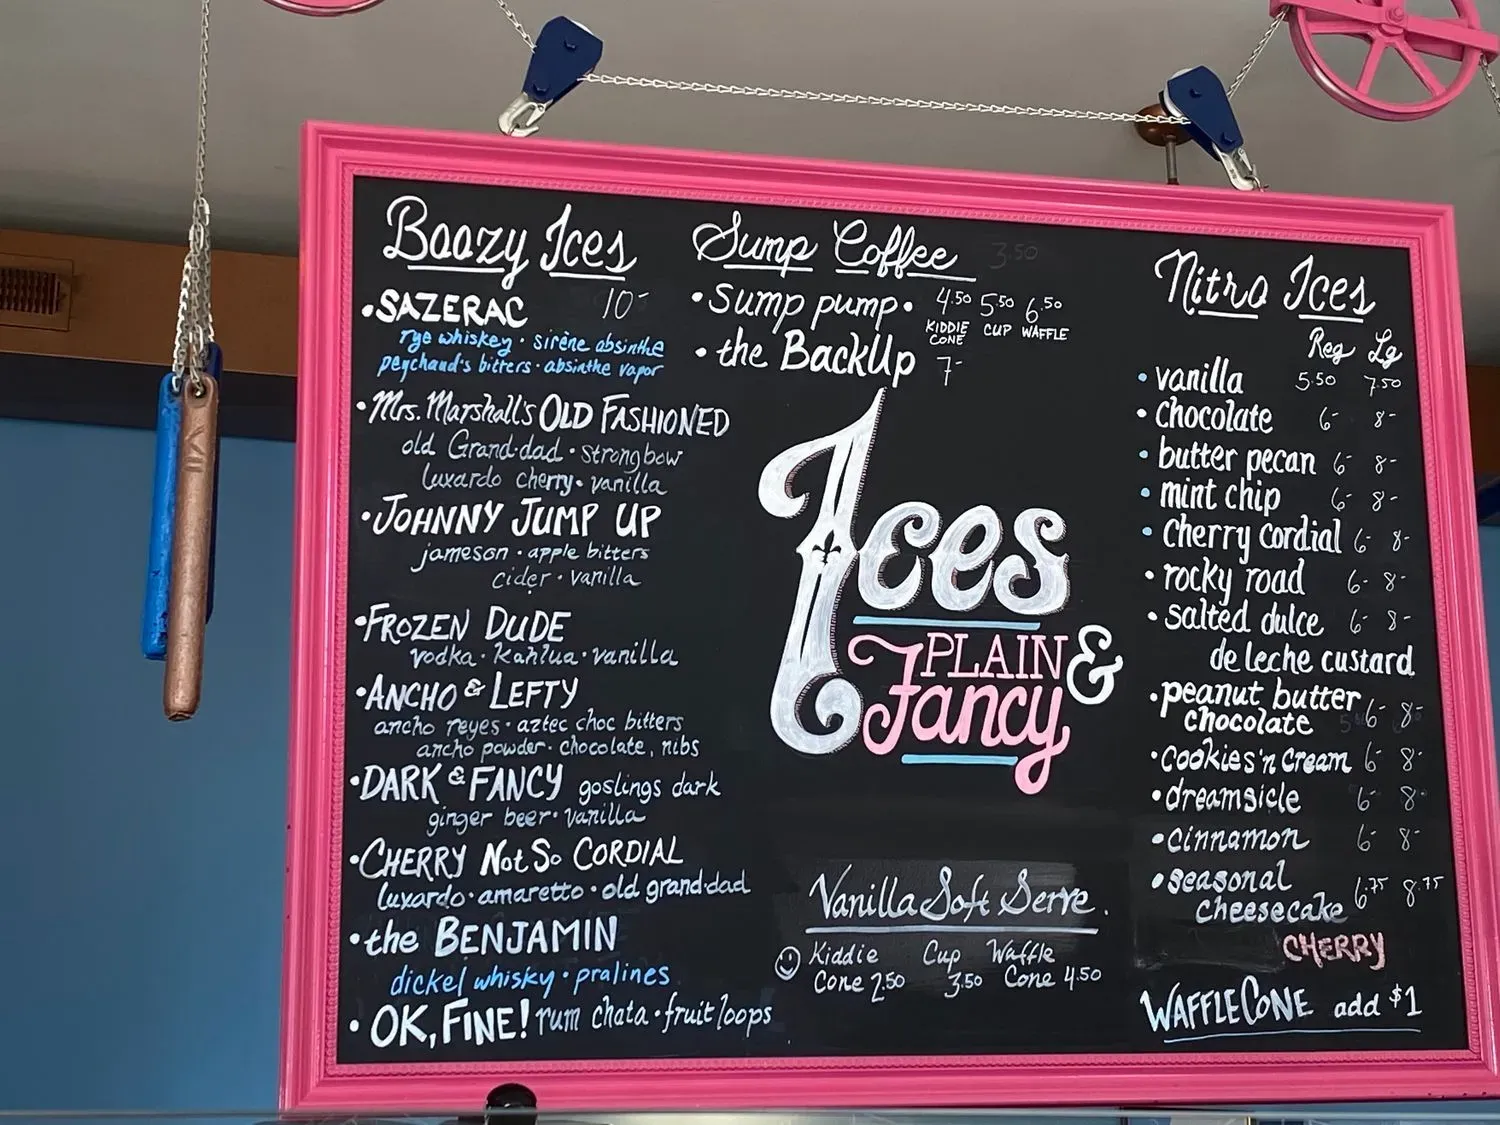 Boozy Ices
• SAZERAC 10-
rye whiskey · sirène absinthe
peychaud's bitters · absinthe vapor
• Mrs. Marshall's OLD FASHIONED
old Grand·dad · strongbow
luxardo cherry · vanilla
• JOHNNY JUMP UP
jameson · apple bitters
cider · vanilla
• FROZEN DUDE
vodka · kahlua · vanilla
• ANCHO & LEFTY
ancho reyes · aztec choc bitters
ancho powder · chocolate, nibs
• DARK & FANCY goslings dark
ginger beer · vanilla
• CHERRY Not So CORDIAL
luxardo · amaretto · old grand·dad
• the BENJAMIN
dickel whisky · pralines
• OK, FINE! rum chata · fruit loops
Sump Coffee 3.50
• Sump pump • 4.50 5.50 6.50
KIDDIE CONE CUP WAFFLE
• the BackUp 7-
Ices
PLAIN &
Fancy
Vanilla Soft Serve
Kiddie Cup Waffle
Cone 2.50 3.50 Cone 4.50
Nitro Ices
Reg Lg
• vanilla 5.50 7.50
• chocolate 6- 8-
• butter pecan 6- 8-
• mint chip 6- 8-
• cherry cordial 6- 8-
• rocky road 6- 8-
• salted dulce 6- 8-
de leche custard
• peanut butter 6- 8-
chocolate
• cookies 'n cream 6- 8-
• dreamsicle 6- 8-
• cinnamon 6- 8-
• seasonal 6.75 8.75
cheesecake
CHERRY
WAFFLE CONE add $1